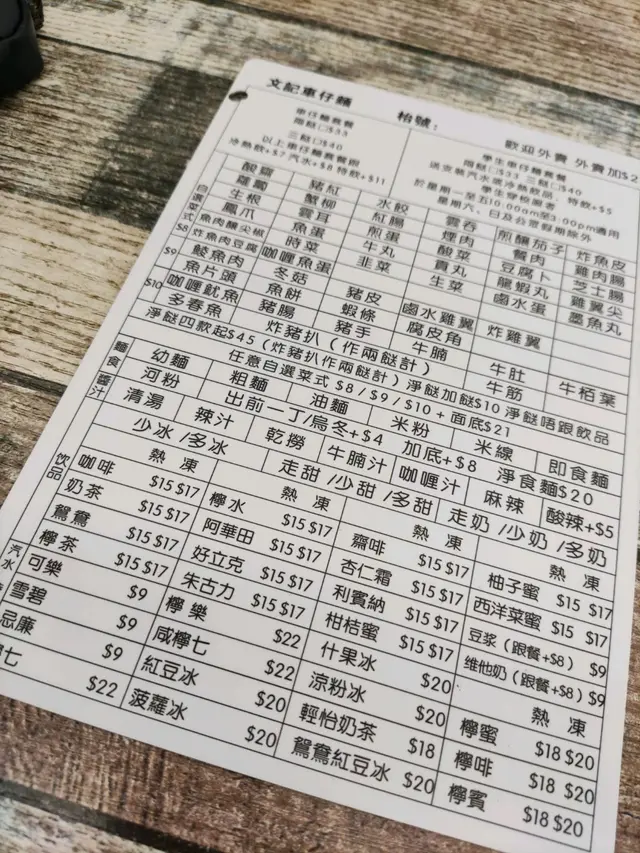 文記車仔麵 枱號：
歡迎外賣 外賣加$2
車仔麵套餐
兩餸□$33
三餸□$40
以上車仔麵套餐跟
冷熱飲+$7 汽水+$8 特飲+$11
學生車仔麵套餐
兩餸□$33 三餸□$40
送支裝汽水或冷熱飲品，特飲+$5
學生穿校服者
於星期一至五10:00am至3:00pm適用
星期六、日及公眾假期除外
自選菜式
$8
酸齋 豬紅 水餃 雲吞 煎釀茄子 炸魚皮
蘿蔔 蟹柳 紅腸 煙肉 餐肉 雞肉腸
生根 雲耳 煎蛋 酸菜 豆腐卜 芝士腸
鳳爪 魚蛋 牛丸 貢丸 龍蝦丸 雞翼尖
魚肉釀尖椒 時菜 韮菜 生菜 鹵水蛋 墨魚丸
炸魚肉豆腐 咖喱魚蛋
$9
鯪魚肉 冬菇 豬皮 鹵水雞翼 炸雞翼
魚片頭 魚餅 蝦條 腐皮角
$10
咖喱魷魚 豬腸 豬手 牛腩 牛肚 牛栢葉
多春魚 炸豬扒（作兩餸計） 牛筋
淨餸四款起$45（炸豬扒作兩餸計）淨餸加餸$10 淨餸唔跟飲品
任意自選菜式 $8／$9／$10 + 面底$21
麵食
幼麵 粗麵 油麵 米粉 米線 即食麵
河粉 出前一丁/烏冬+$4 加底+$8 淨食麵$20
醬汁
清湯 辣汁 乾撈 牛腩汁 咖喱汁 麻辣 酸辣+$5
少冰/多冰 走甜/少甜/多甜 走奶/少奶/多奶
飲品
熱 凍 熱 凍 熱 凍 熱 凍
咖啡 $15 $17 檸水 $15 $17 齋啡 $15 $17 柚子蜜 $15 $17
奶茶 $15 $17 阿華田 $15 $17 杏仁霜 $15 $17 西洋菜蜜 $15 $17
鴛鴦 $15 $17 好立克 $15 $17 利賓納 $15 $17 豆漿（跟餐+$8） $9
檸茶 $15 $17 朱古力 $15 $17 柑桔蜜 $15 $17 維他奶（跟餐+$8）$9
汽水
可樂 $9 檸樂 $22 什果冰 $20 熱 凍
雪碧 $9 咸檸七 $22 涼粉冰 $20 檸蜜 $18 $20
忌廉 $9 紅豆冰 $20 輕怡奶茶 $18 檸啡 $18 $20
七 $22 菠蘿冰 $20 鴛鴦紅豆冰 $20 檸賓 $18 $20